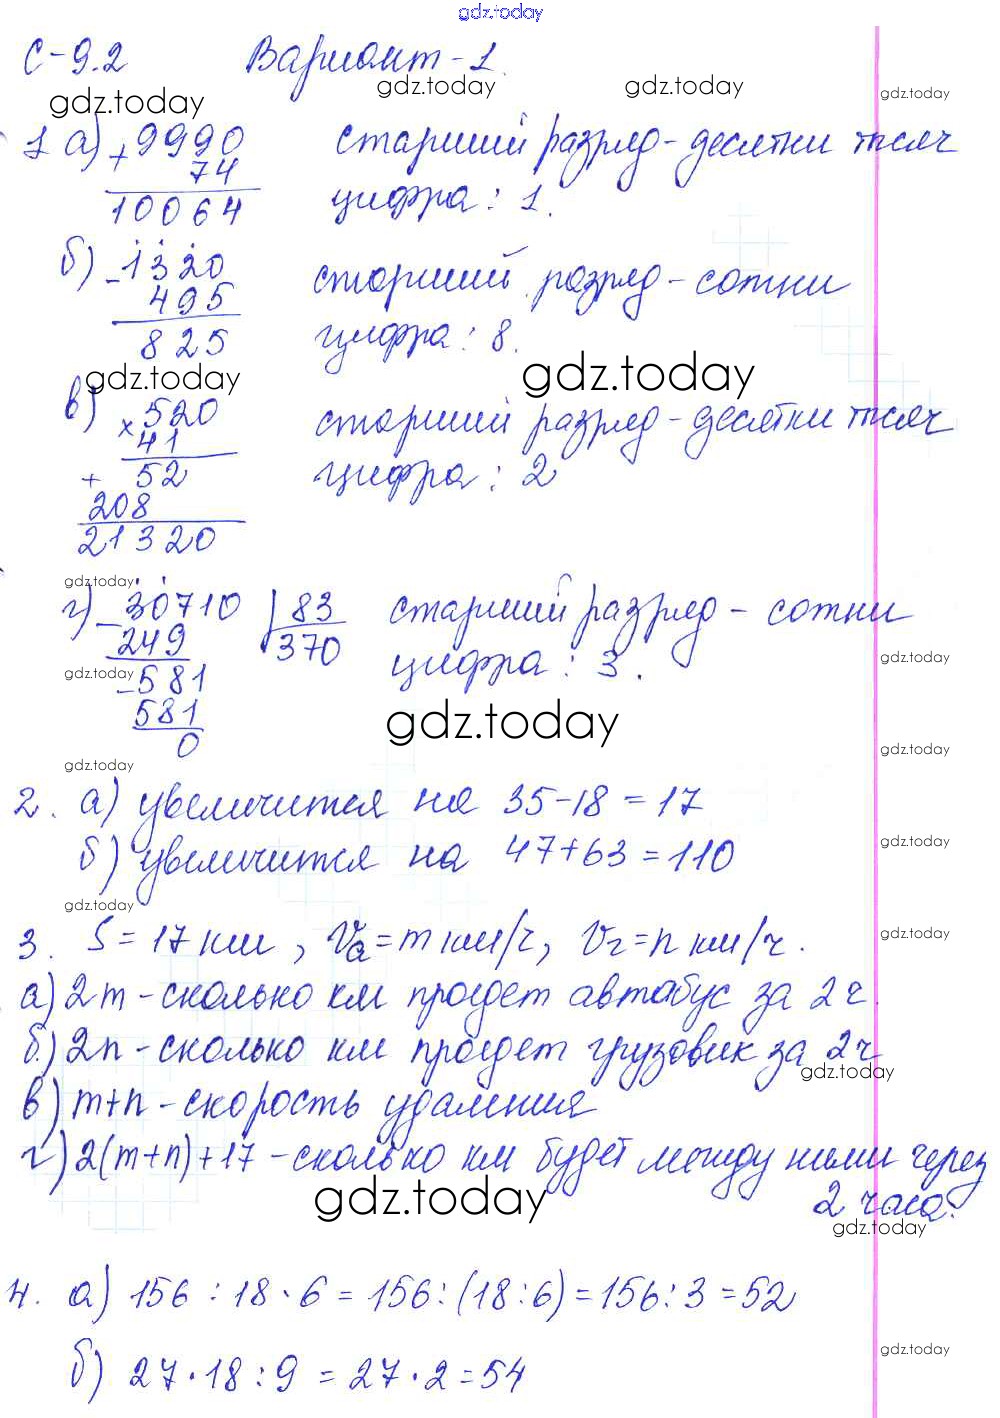 gdz.today
С-9.2 Вариант-1.
gdz.today gdz.today gdz.today gdz.today
1 а) +9990 старший разряд - десятки тысяч
74
10064 цифра : 1.
б) -1320 старший разряд - сотни
495
825 цифра : 8.
gdz.today gdz.today
в) ×520 старший разряд - десятки тысяч
41
+ 52 цифра : 2
208
21320
gdz.today
г) -30710 | 83 старший разряд - сотни
249 370
gdz.today -581 цифра : 3. gdz.today
581
0
gdz.today
gdz.today gdz.today
2. а) увеличится на 35-18=17
б) увеличится на 47+63=110 gdz.today
gdz.today
3. S=17 км, Vа=m км/ч, Vг=n км/ч. gdz.today
а) 2m - сколько км проедет автобус за 2ч.
б) 2n - сколько км проедет грузовик за 2ч
gdz.today
в) m+n - скорость удаления
г) 2(m+n)+17 - сколько км будет между ними через
2 часа.
gdz.today gdz.today
4. а) 156 : 18 · 6 = 156 : (18 : 6) = 156 : 3 = 52
б) 27 · 18 : 9 = 27 · 2 = 54 gdz.today